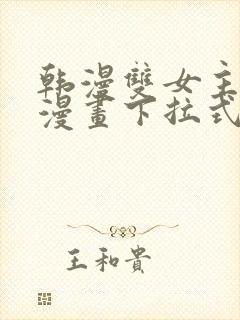 韩漫雙女主
漫畫下拉式
王和貴